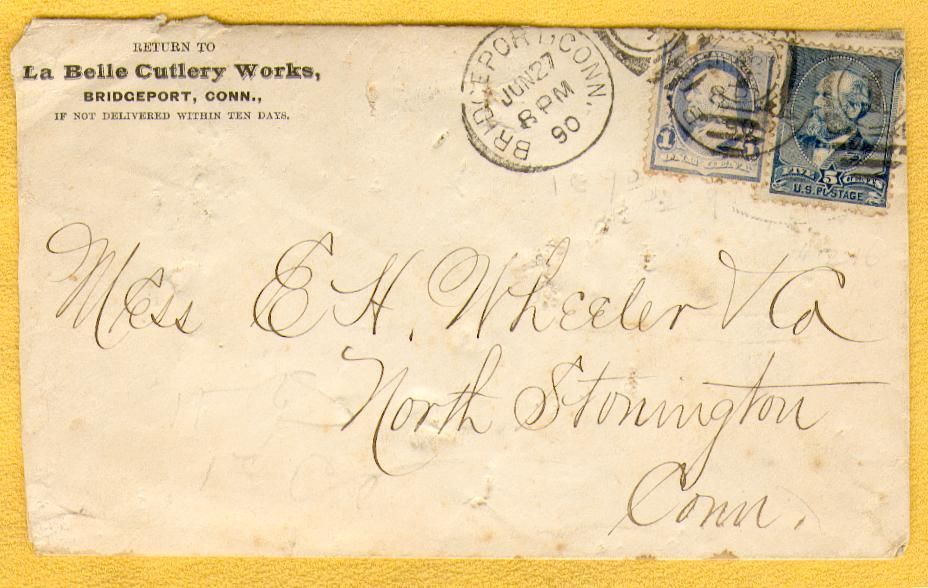 RETURN TO
La Belle Cutlery Works,
BRIDGEPORT, CONN.,
IF NOT DELIVERED WITHIN TEN DAYS.
BRIDGEPORT, CONN.
JUN 27
8 PM
90
1 1
FIVE 5 CENTS
U.S. POSTAGE
Mess E H. Wheeler & Co
North Stonington
Conn.